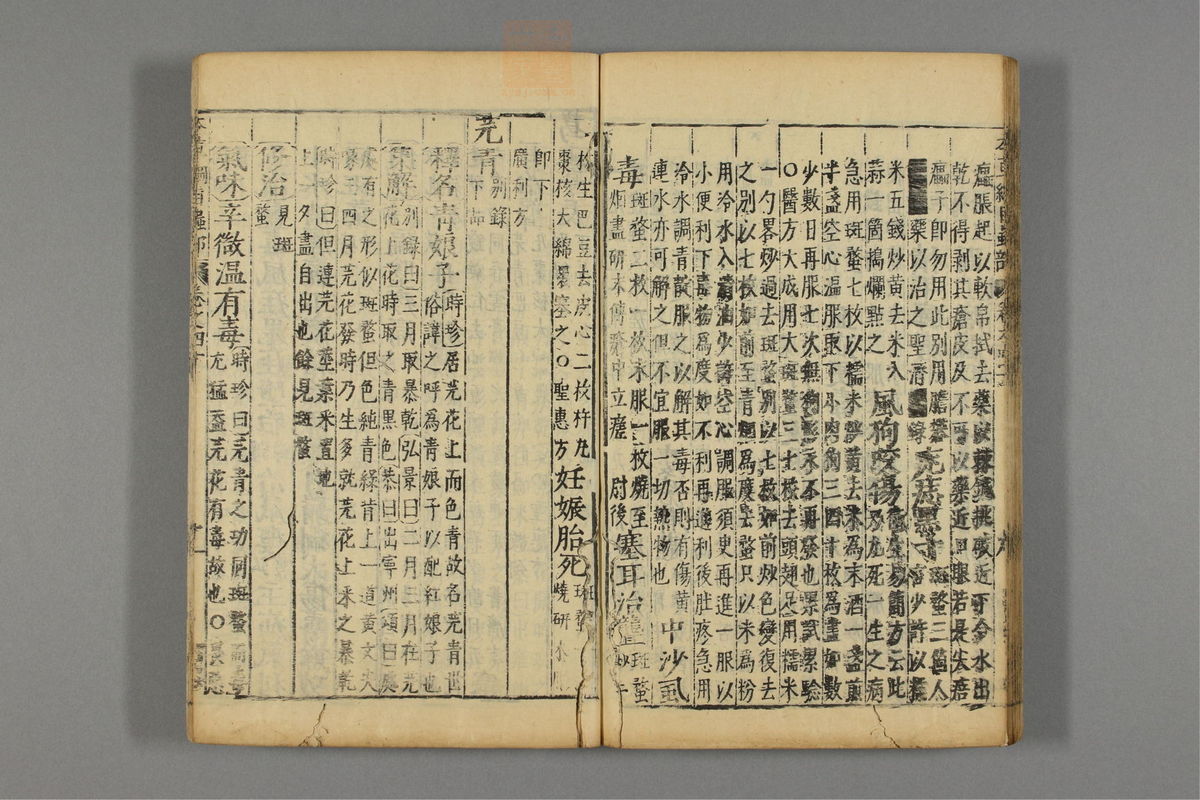 瘟脹起以軟帛拭去藥以蘇鍼挑破近下令水出
乾不得剥其瘡皮及不可以藥近口眼若是尖瘡
瘟子即勿用此別用膽礬
藥以治之聖濟
斑蝥二箇人
少許以
米五錢炒黄去米入
蒜一箇搗爛點之
風狗咬傷
九死一生之病
急用斑蝥七枚以糯米炒黄去米為末酒一盞煎
半盞空心温服取下小肉狗三四十枚為盡如數
少數日再服七次無狗形永不再發也累試累驗
○醫方大成用大斑蝥三七枚去頭翅足用糯米
一勺畧炒過去斑蝥別以七枚如前炒色變復去
之別以七枚如前至青烟為度去蝥只以米為粉
用冷水入清油少許空心調服須臾再進一服以
小便利下毒物為度如不利再進利後肚疼急用
冷水調青靛服之以解其毒否則有傷黄
連水亦可解之但不宜服一切熱物也
中沙虱
毒斑蝥二枚一枚末服一枚燒至
烟盡研末傅瘡中立瘥
尉後
塞耳治聾斑蝥
炒二
枚生巴豆去皮心二枚杵丸
棗核大綿裹塞之○聖惠方
妊娠胎死斑蝥
燒研水
即下
廣利方
芫青別錄
下品
釋名青娘子時珍居芫花上而色青故名芫青世
俗諱之呼為青娘子以配紅娘子也
集解別錄曰三月取暴乾弘景曰二月三月在芫
花上花時取之青黑色恭曰出寧州頌曰處
處有之形似斑蝥但色純青緑背上一道黄文尖
喙三四月芫花發時乃生多就芫花上采之暴乾
時珍曰但連芫花莖葉采置地
上一夕盡自出也餘見斑蝥
修治見斑
蝥
氣味辛微温有毒時珍曰芫青之功同斑蝥而毒
尤猛蓋芫花有毒故也○畏惡